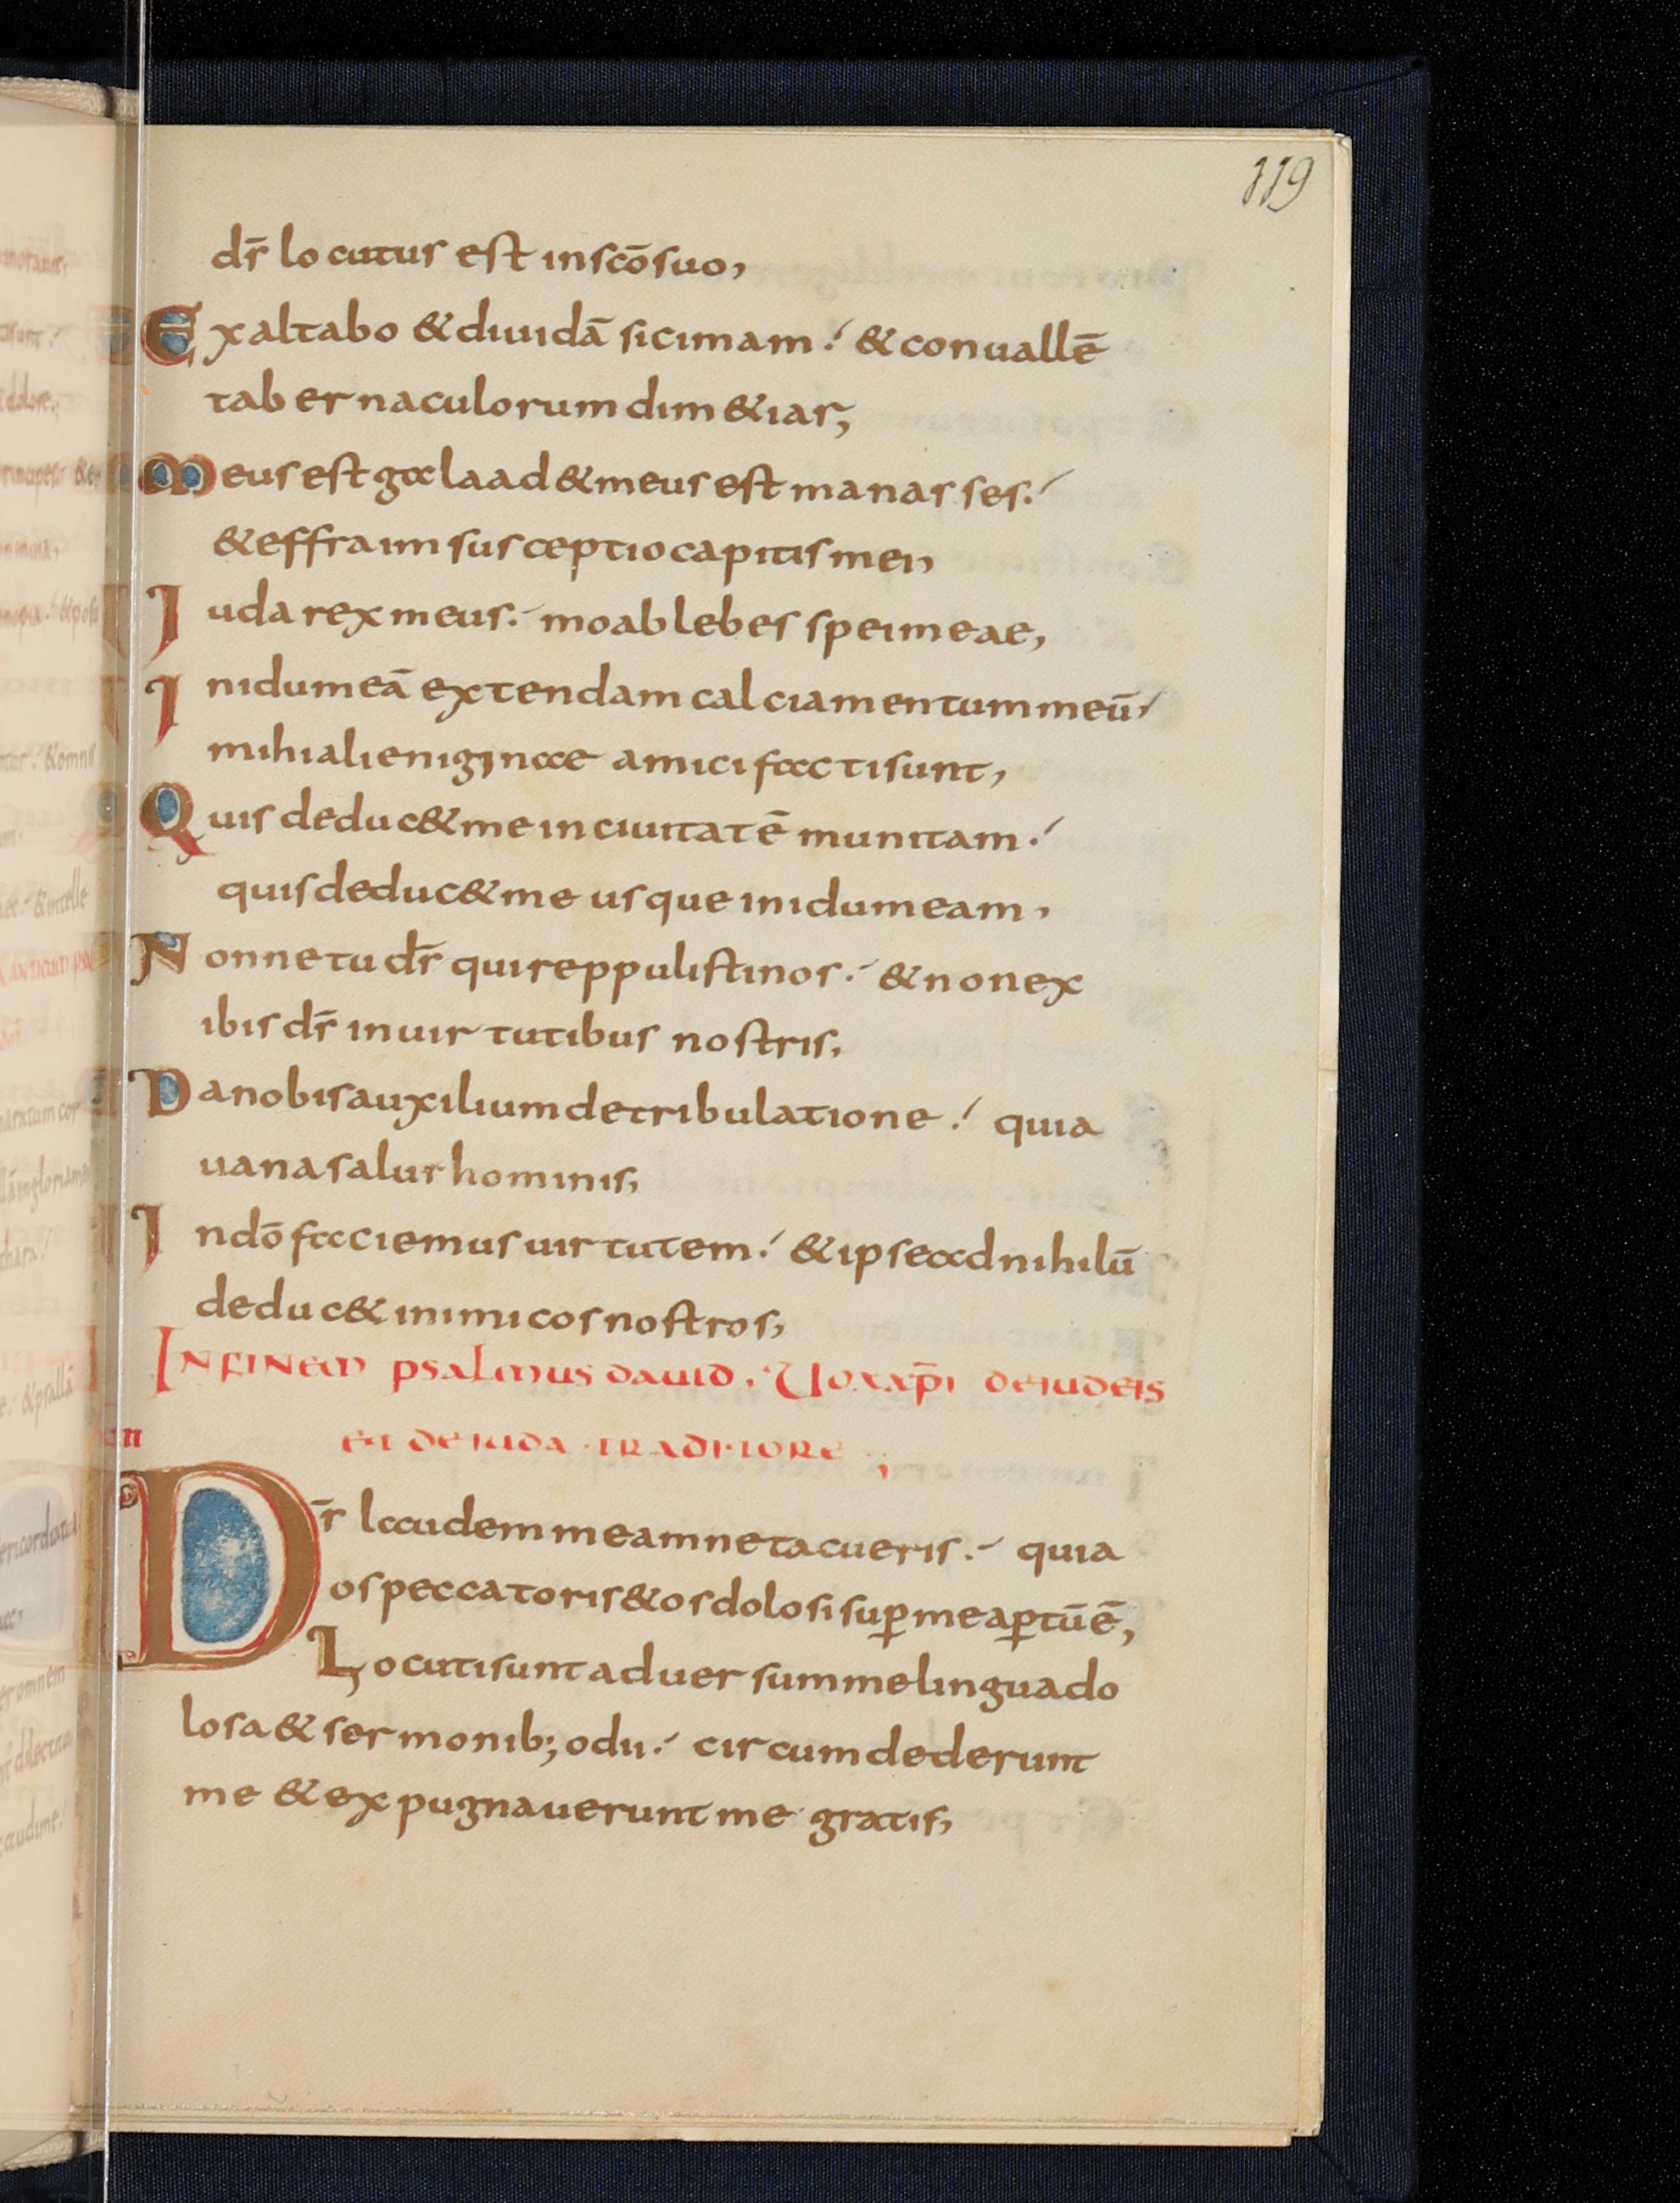 119
dr̄ locutus est in scō suo,
Exaltabo & diuidā sicimam & conuallē
tabernaculorum dim&iar,
Meus est galaad & meus est manasses
& effraim susceptio capitis mei,
Iuda rex meus. moab lebes spei meae,
In idumeā extendam calciamentum meū
mihi alieniginae amici facti sunt,
Quis deduc& me in ciuitatē munitam.
quis deduc& me usque in idumeam,
Nonne tu dr̄ qui reppulisti nos. & non ex
ibis dr̄ in uirtutibus nostris,
Da nobis auxilium de tribulatione. quia
uana salus hominis,
In dō faciemus uirtutem. & ipse ad nihilū
deduc& inimicos nostros,
In finem psalmus dauid. Uox xp̄i de iudeis
et de iuda traditore,
Dr̄ laudem meam ne tacueris. quia
os peccatoris & os dolosi sup̄ me ap̄tū ē,
Locuti sunt aduersum me lingua do
losa & sermonib; odii. circumdederunt
me & expugnauerunt me gratis,